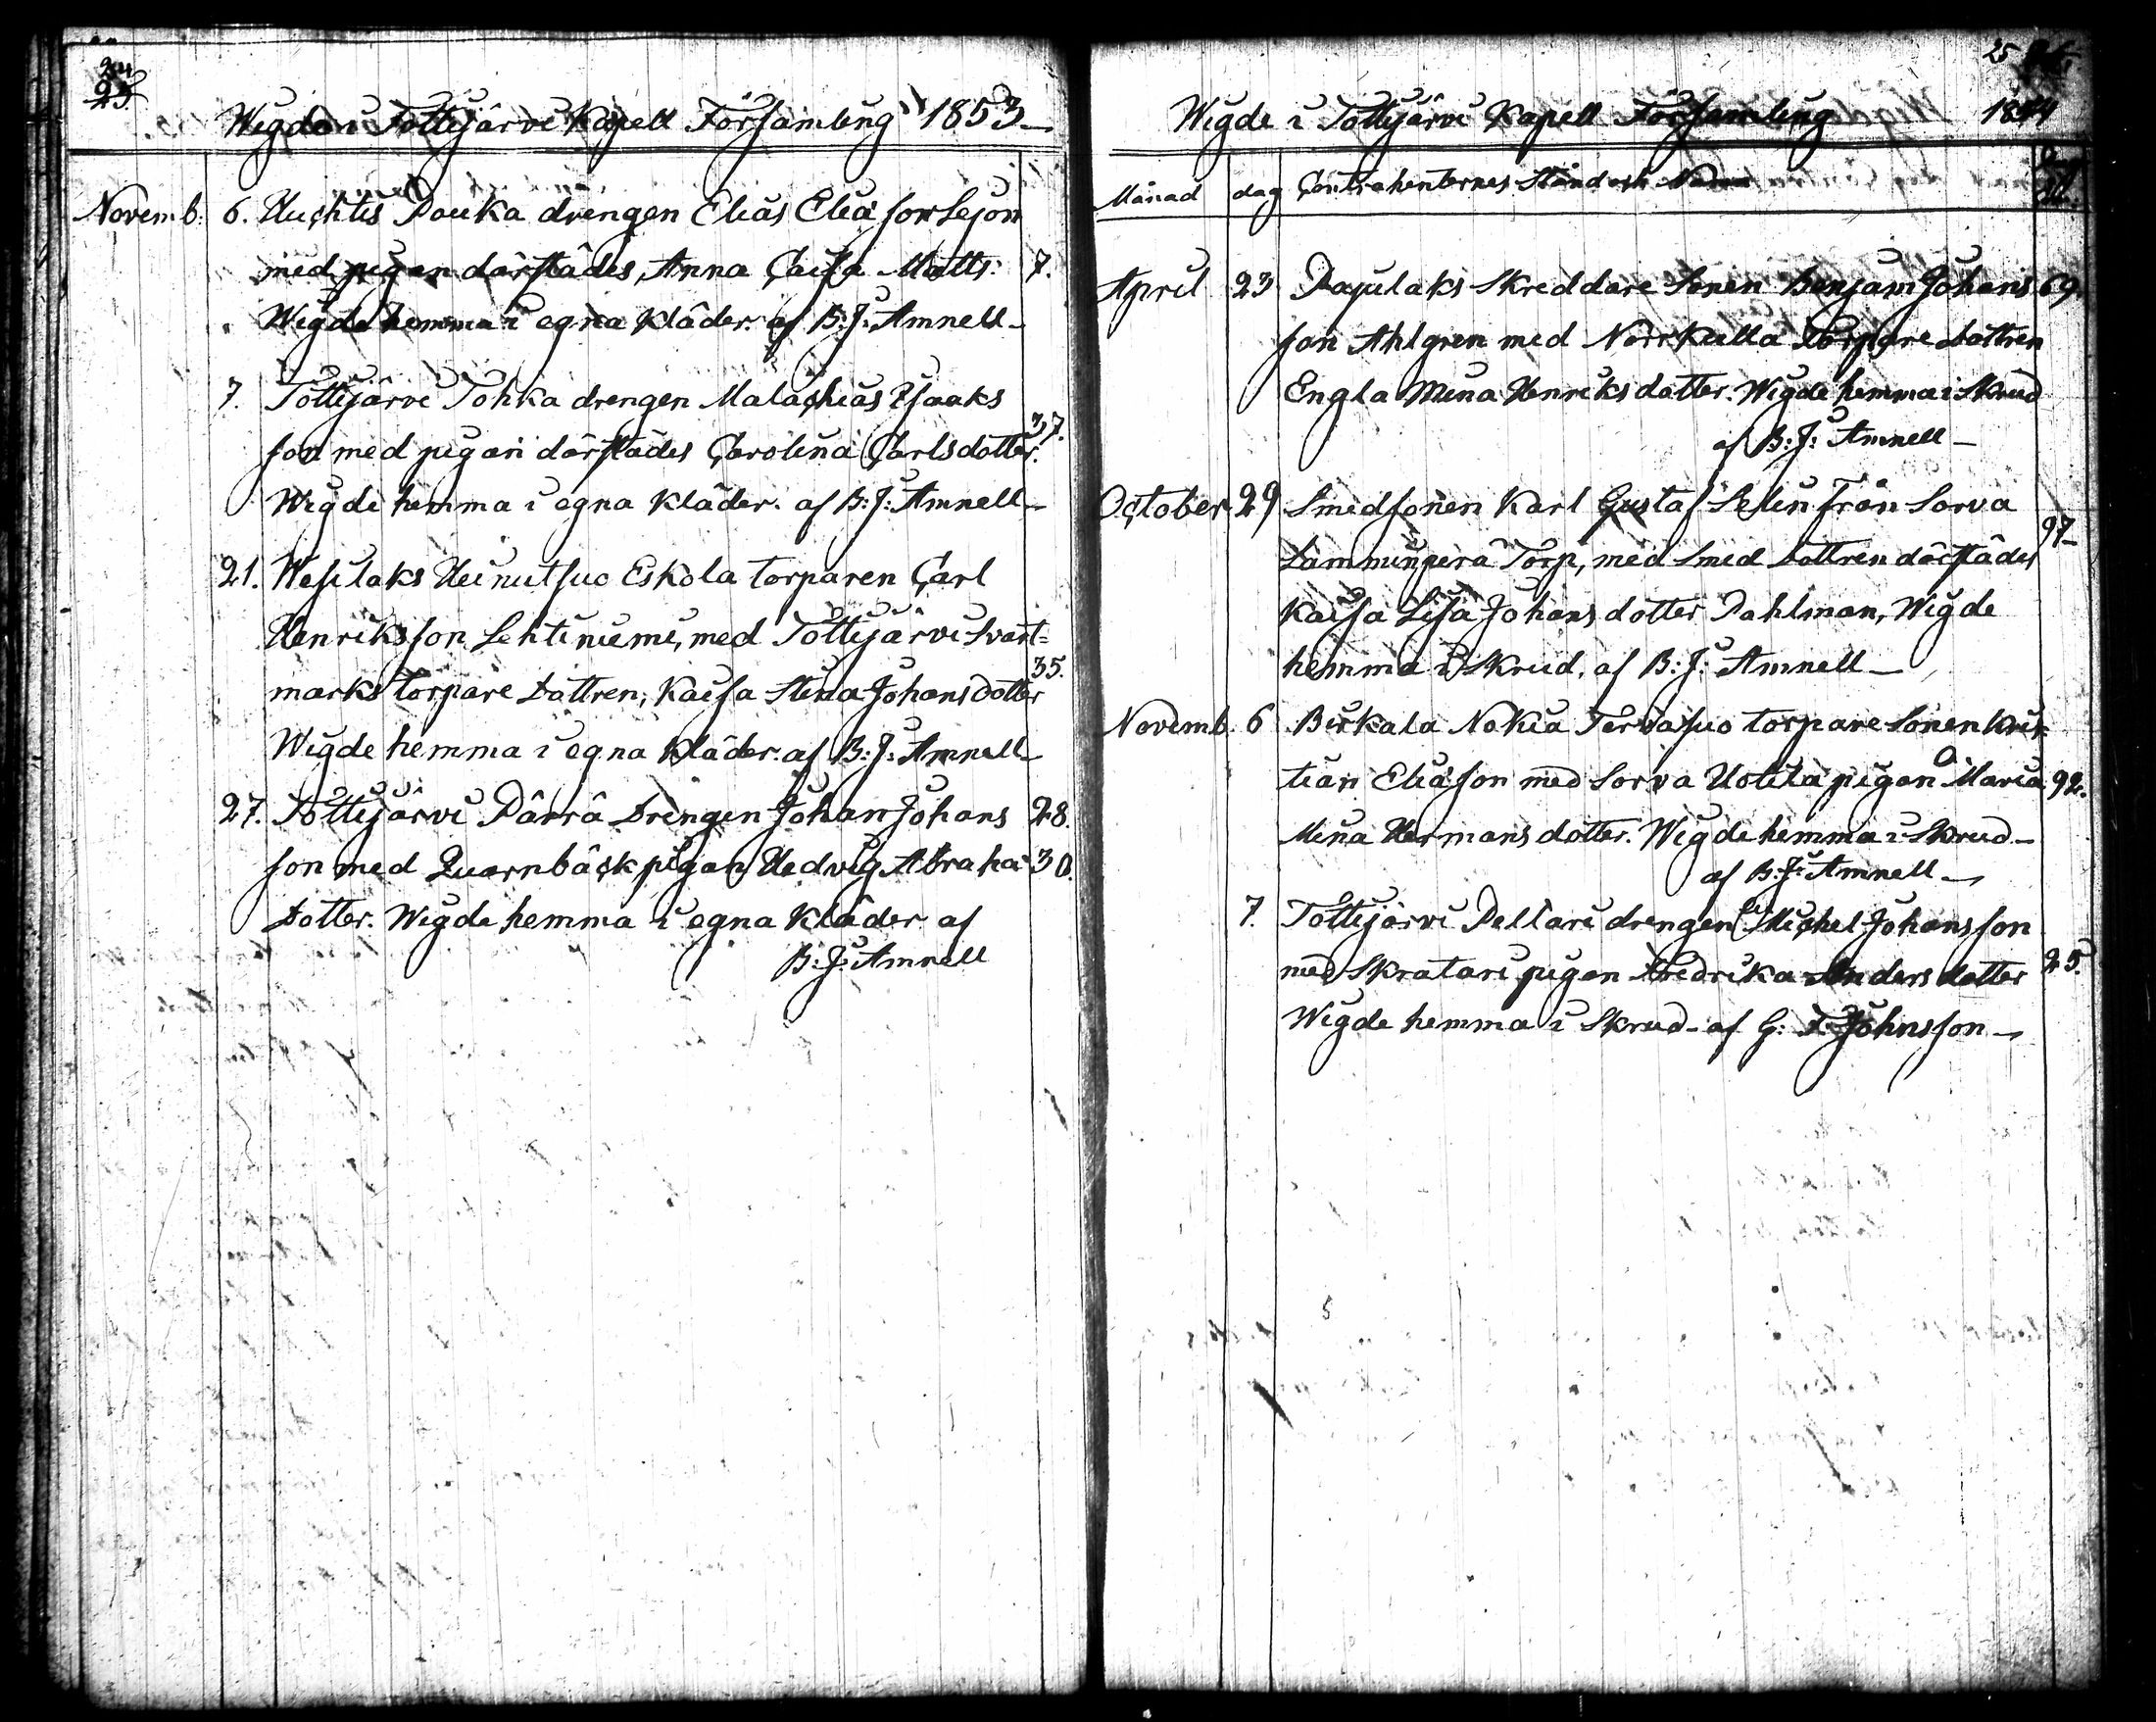 24
23.
Wigde i Tottijärvi Kapell Församling 1853
Novemb. 6. Huchtis Pouka drengen Elias Eliä son Lejon
med pigan därstädes, Anna Caisa Matts: 7.
Wigde hemma i egna kläder. af B: J: Amnell
7. Tottijärvi Tohka drengen Malachias Isaaks
son med pigan därstädes Carolina Carlsdotter. 37.
Wigde hemma i egna kläder. af B: J: Amnell
21. Wesilaks Heinutsuo Eskola torparen Carl
Henriksson Lehtiniemi, med Tottijärvi Svart=
marks Torpare Dottren, Kaisa Stina Johans dotter 35.
Wigde hemma i egna kläder. af B: J: Amnell
27. Tottijärvi Pärrä Drengen Johan Johans 28.
son med Quarnbäck pigan Hedvig Abraha 30.
Dotter. Wigde hemma i egna kläder af
B: J: Amnell
25
Wigde i Tottijärvi Kapell Församling 1854
Månad dag Contrahenternes Stånd och Namn
April 23 Pajulaks Skreddare Sonen Benjam Johans 69.
son Ahlgren med Norrkulla Torpare Dottren
Engla Mina Henriks dotter. Wigde hemma i Skrud
af B: J: Amnell
October 29 Smedsonen Karl Gustaf Selin från Sorva
Lamminperä Torp, med Smed Dottren därstädes 97
Kaisa Lisa Johans dotter Dahlman, Wigde
hemma i Skrud. af B: J: Amnell
Novemb. 6 Birkala Nokia Tervasuo torpare Sonen Kris
tian Eliä son med Sorva Uotila pigan Maria 92.
Mina Hermans dotter. Wigde hemma i Skrud
af B: J: Amnell
7. Tottijärvi Pellari drengen Michel Johansson
med Skratari pigan Fredrika Anders dotter 25.
Wigde hemma i Skrud af G: Johnsson